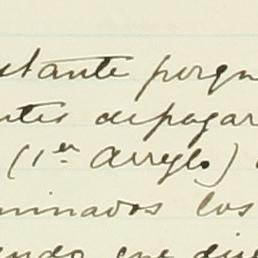 stante porqu
ntes depagar
(1er Arreglo)
minados los
endo que dis